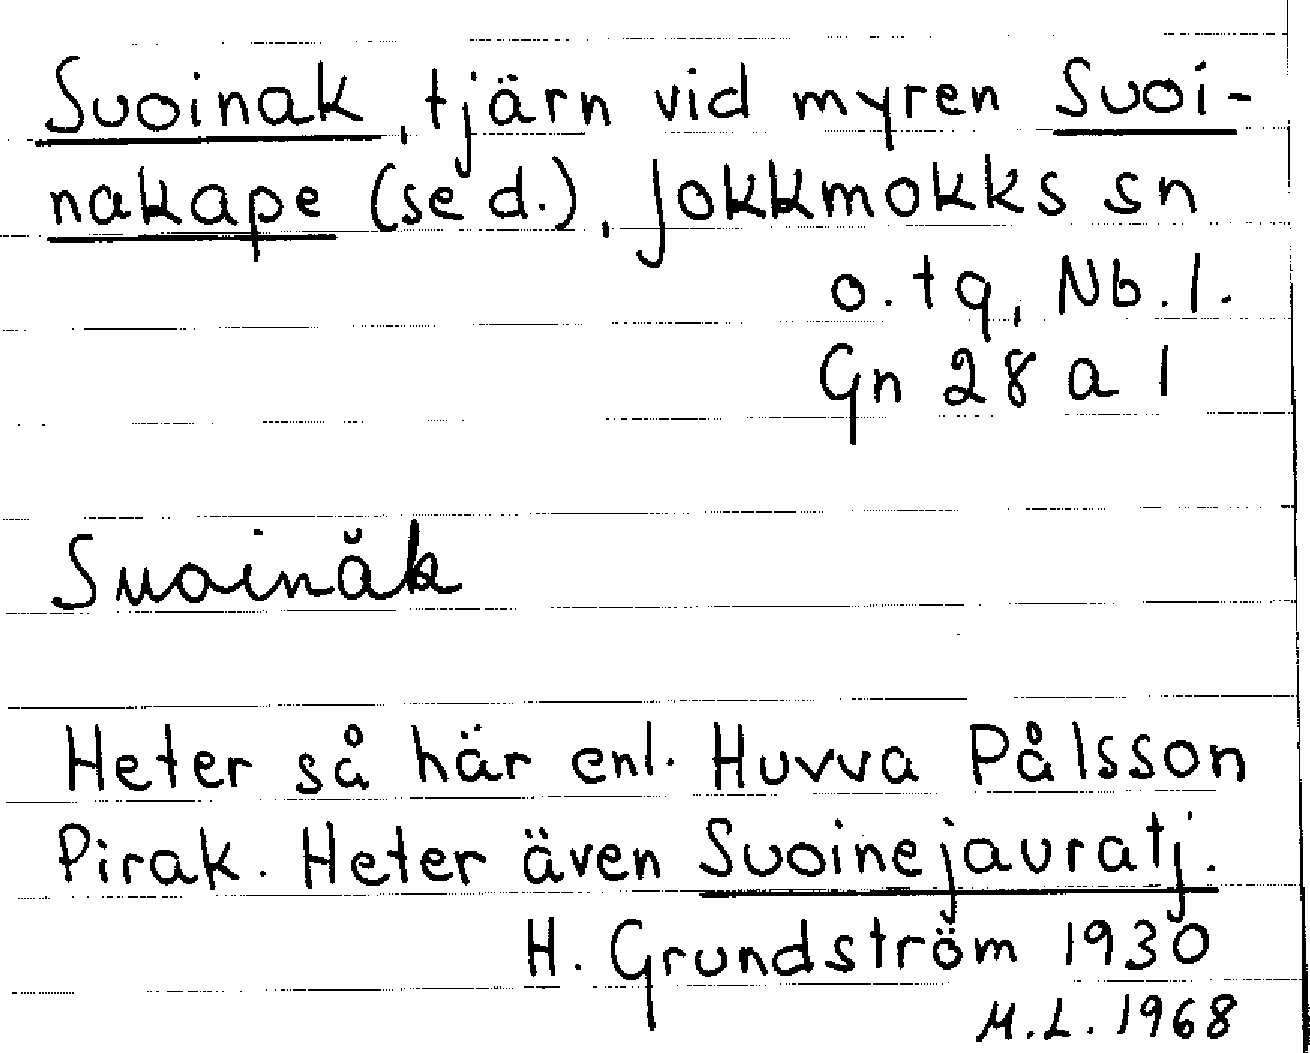 Suoinak, tjärn vid myren Suoi-
nakape (se d.), Jokkmokks sn
o. tg, Nb. l.
Gn 28 a 1
Suoinăk
Heter så här enl. Huvva Pålsson
Pirak. Heter även Suoinejauratj.
H. Grundström 1930
M.L. 1968